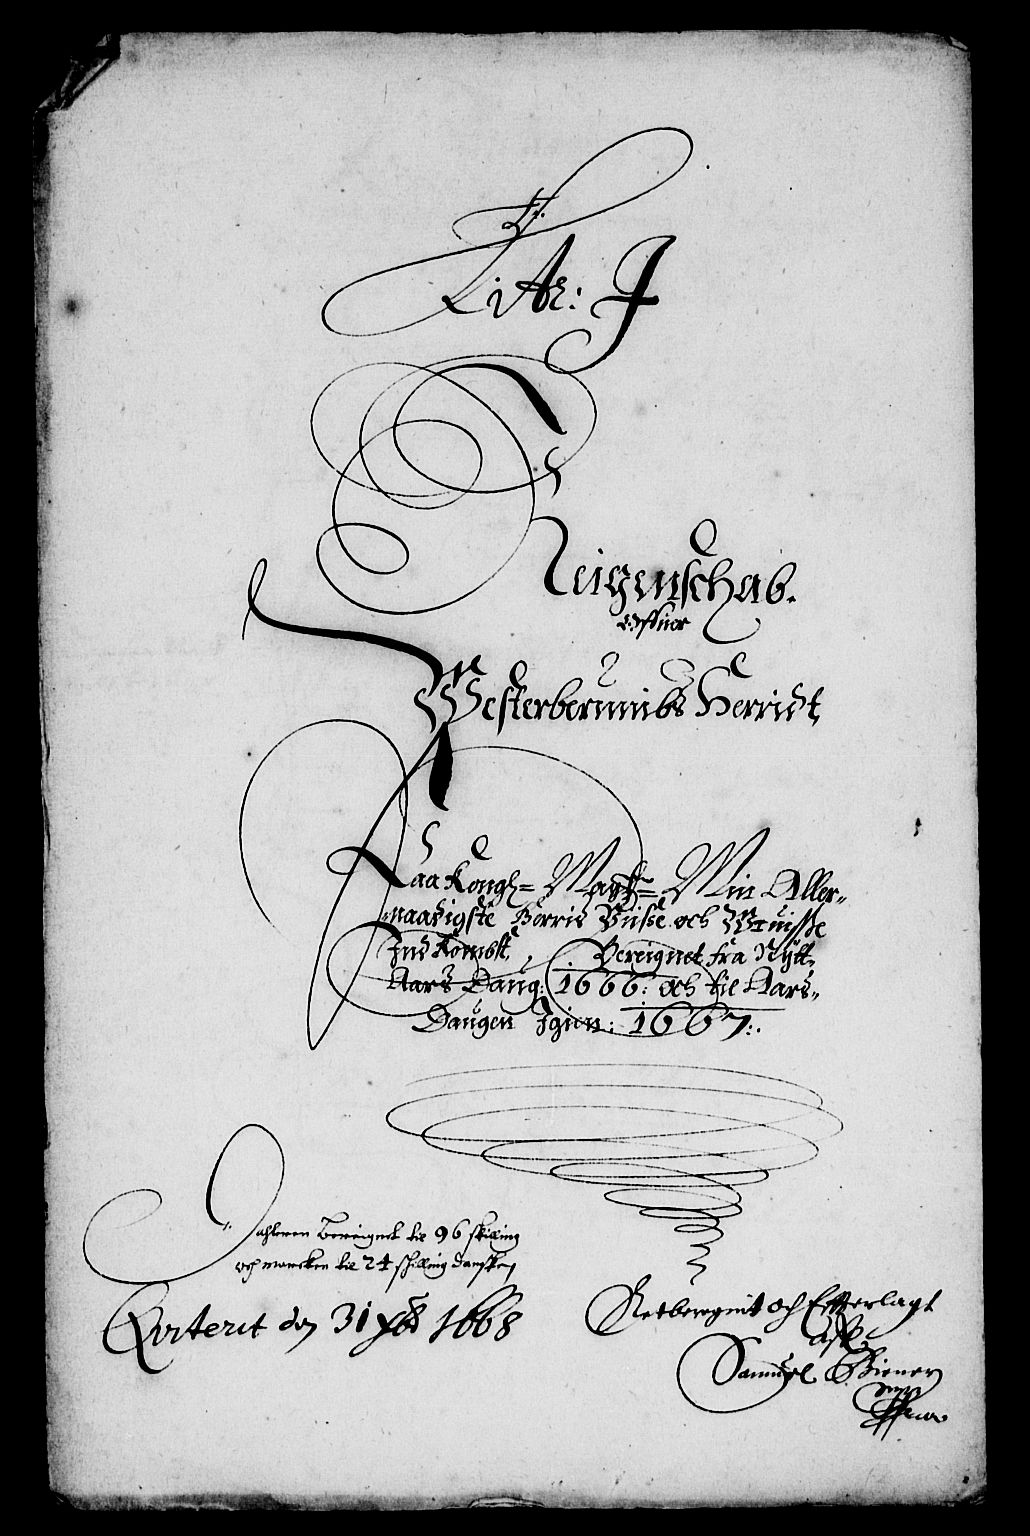 Litr: J
Reigenschab.
offuer
Westerberumbs Herridt
Paa Kongl= Maytt= Min Aller-
naadigste Herris Visse och Wuisse
Ind Kombst, Bereignet fra Nytt
Aars Daug: 1666: och til Aars-
Daugen Igien: 1667:.
Dahleren bereignet til 96 skilling
och marcken til 24 schilling dansken
Qvitterit den 31 Xbr 1668
Retberegnit och Efterlagt
aff
Samuel